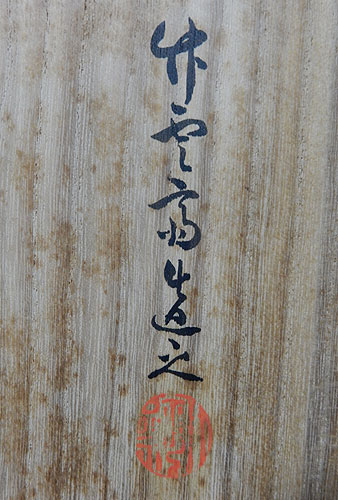 竹雲斎造之